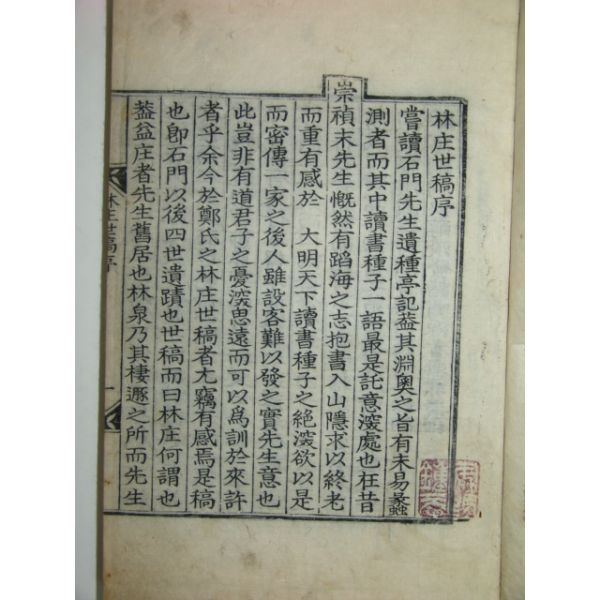 林庄世稿序
嘗讀石門先生遺種亭記葢其淵奧之旨有未易蠡
測者而其中讀書種子一語最是託意深處也在昔
崇禎末先生慨然有蹈海之志抱書入山隱求以終老
而重有感於 大明天下讀書種子之絶深欲以是
而密傳一家之後人雖設客難以發之實先生意也
此豈非有道君子之憂深思遠而可以爲訓於來許
者乎余今於鄭氏之林庄世稿者尤竊有感焉是稿
也卽石門以後四世遺蹟也世稿而曰林庄何謂也
葢益庄者先生舊居也林泉乃其棲遯之所而先生
林庄世稿序
一